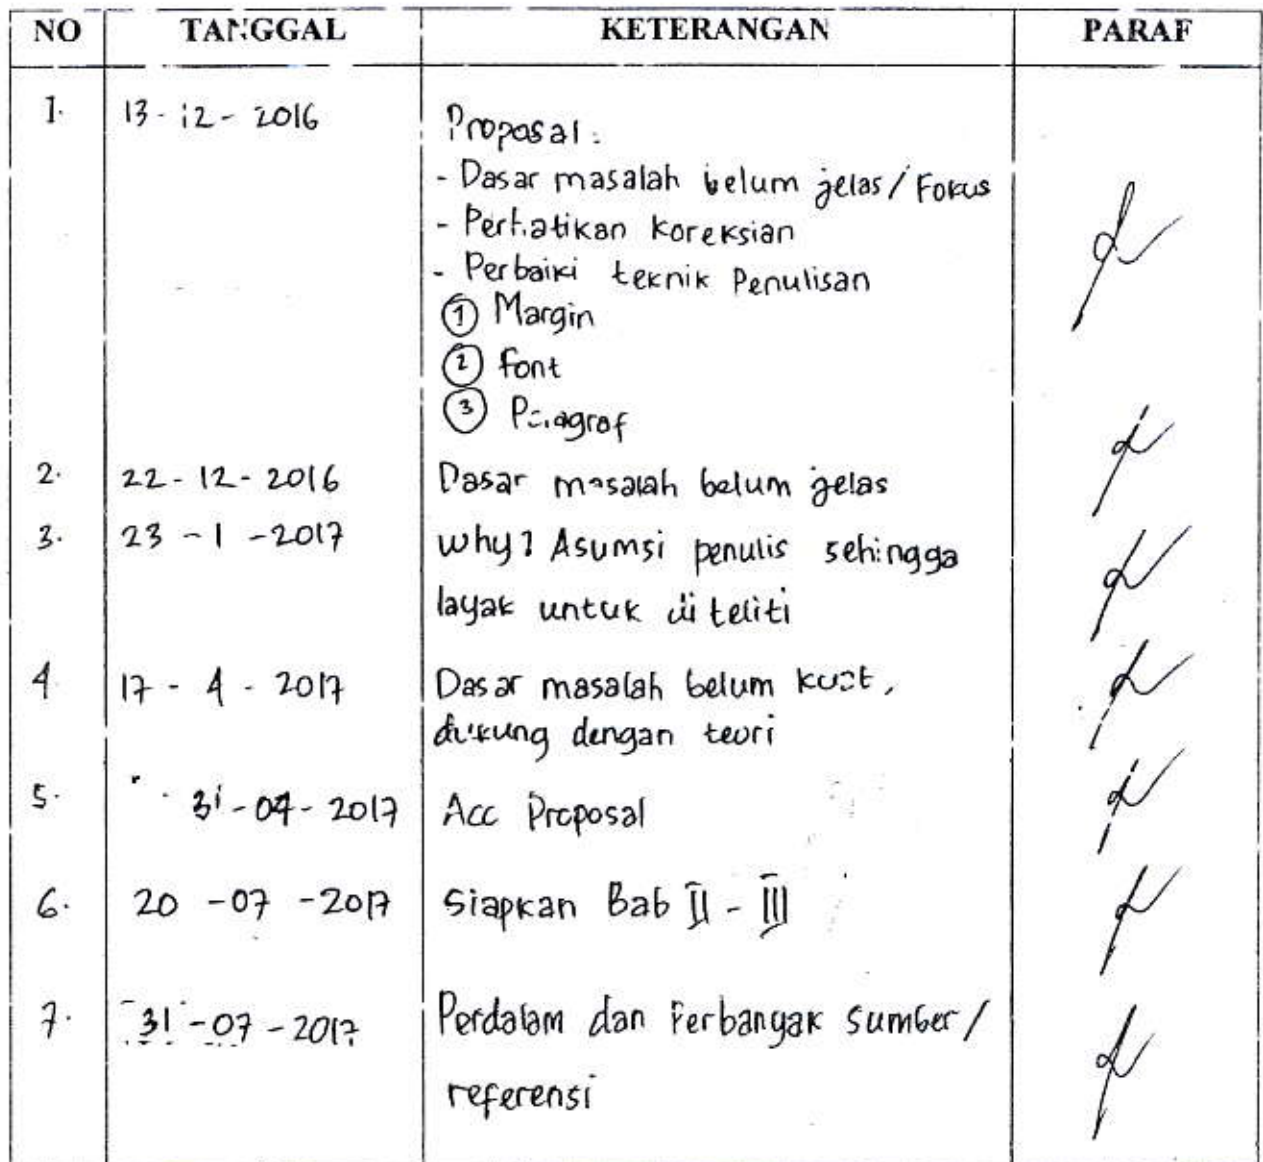 NO TANGGAL KETERANGAN PARAF
1. 13-12-2016 Proposal:
- Dasar masalah belum jelas/Fokus
- Perhatikan Koreksian
- Perbaiki teknik Penulisan
① Margin
② Font
③ Paragraf
2. 22-12-2016 Dasar masalah belum jelas
3. 23-1-2017 why? Asumsi penulis sehingga
layak untuk di teliti
4. 17-4-2017 Dasar masalah belum kuat,
dukung dengan teori
5. 31-04-2017 Acc Proposal
6. 20-07-2017 Siapkan Bab II - III
7. 31-07-2017 Perdalam dan Perbanyak sumber/
referensi